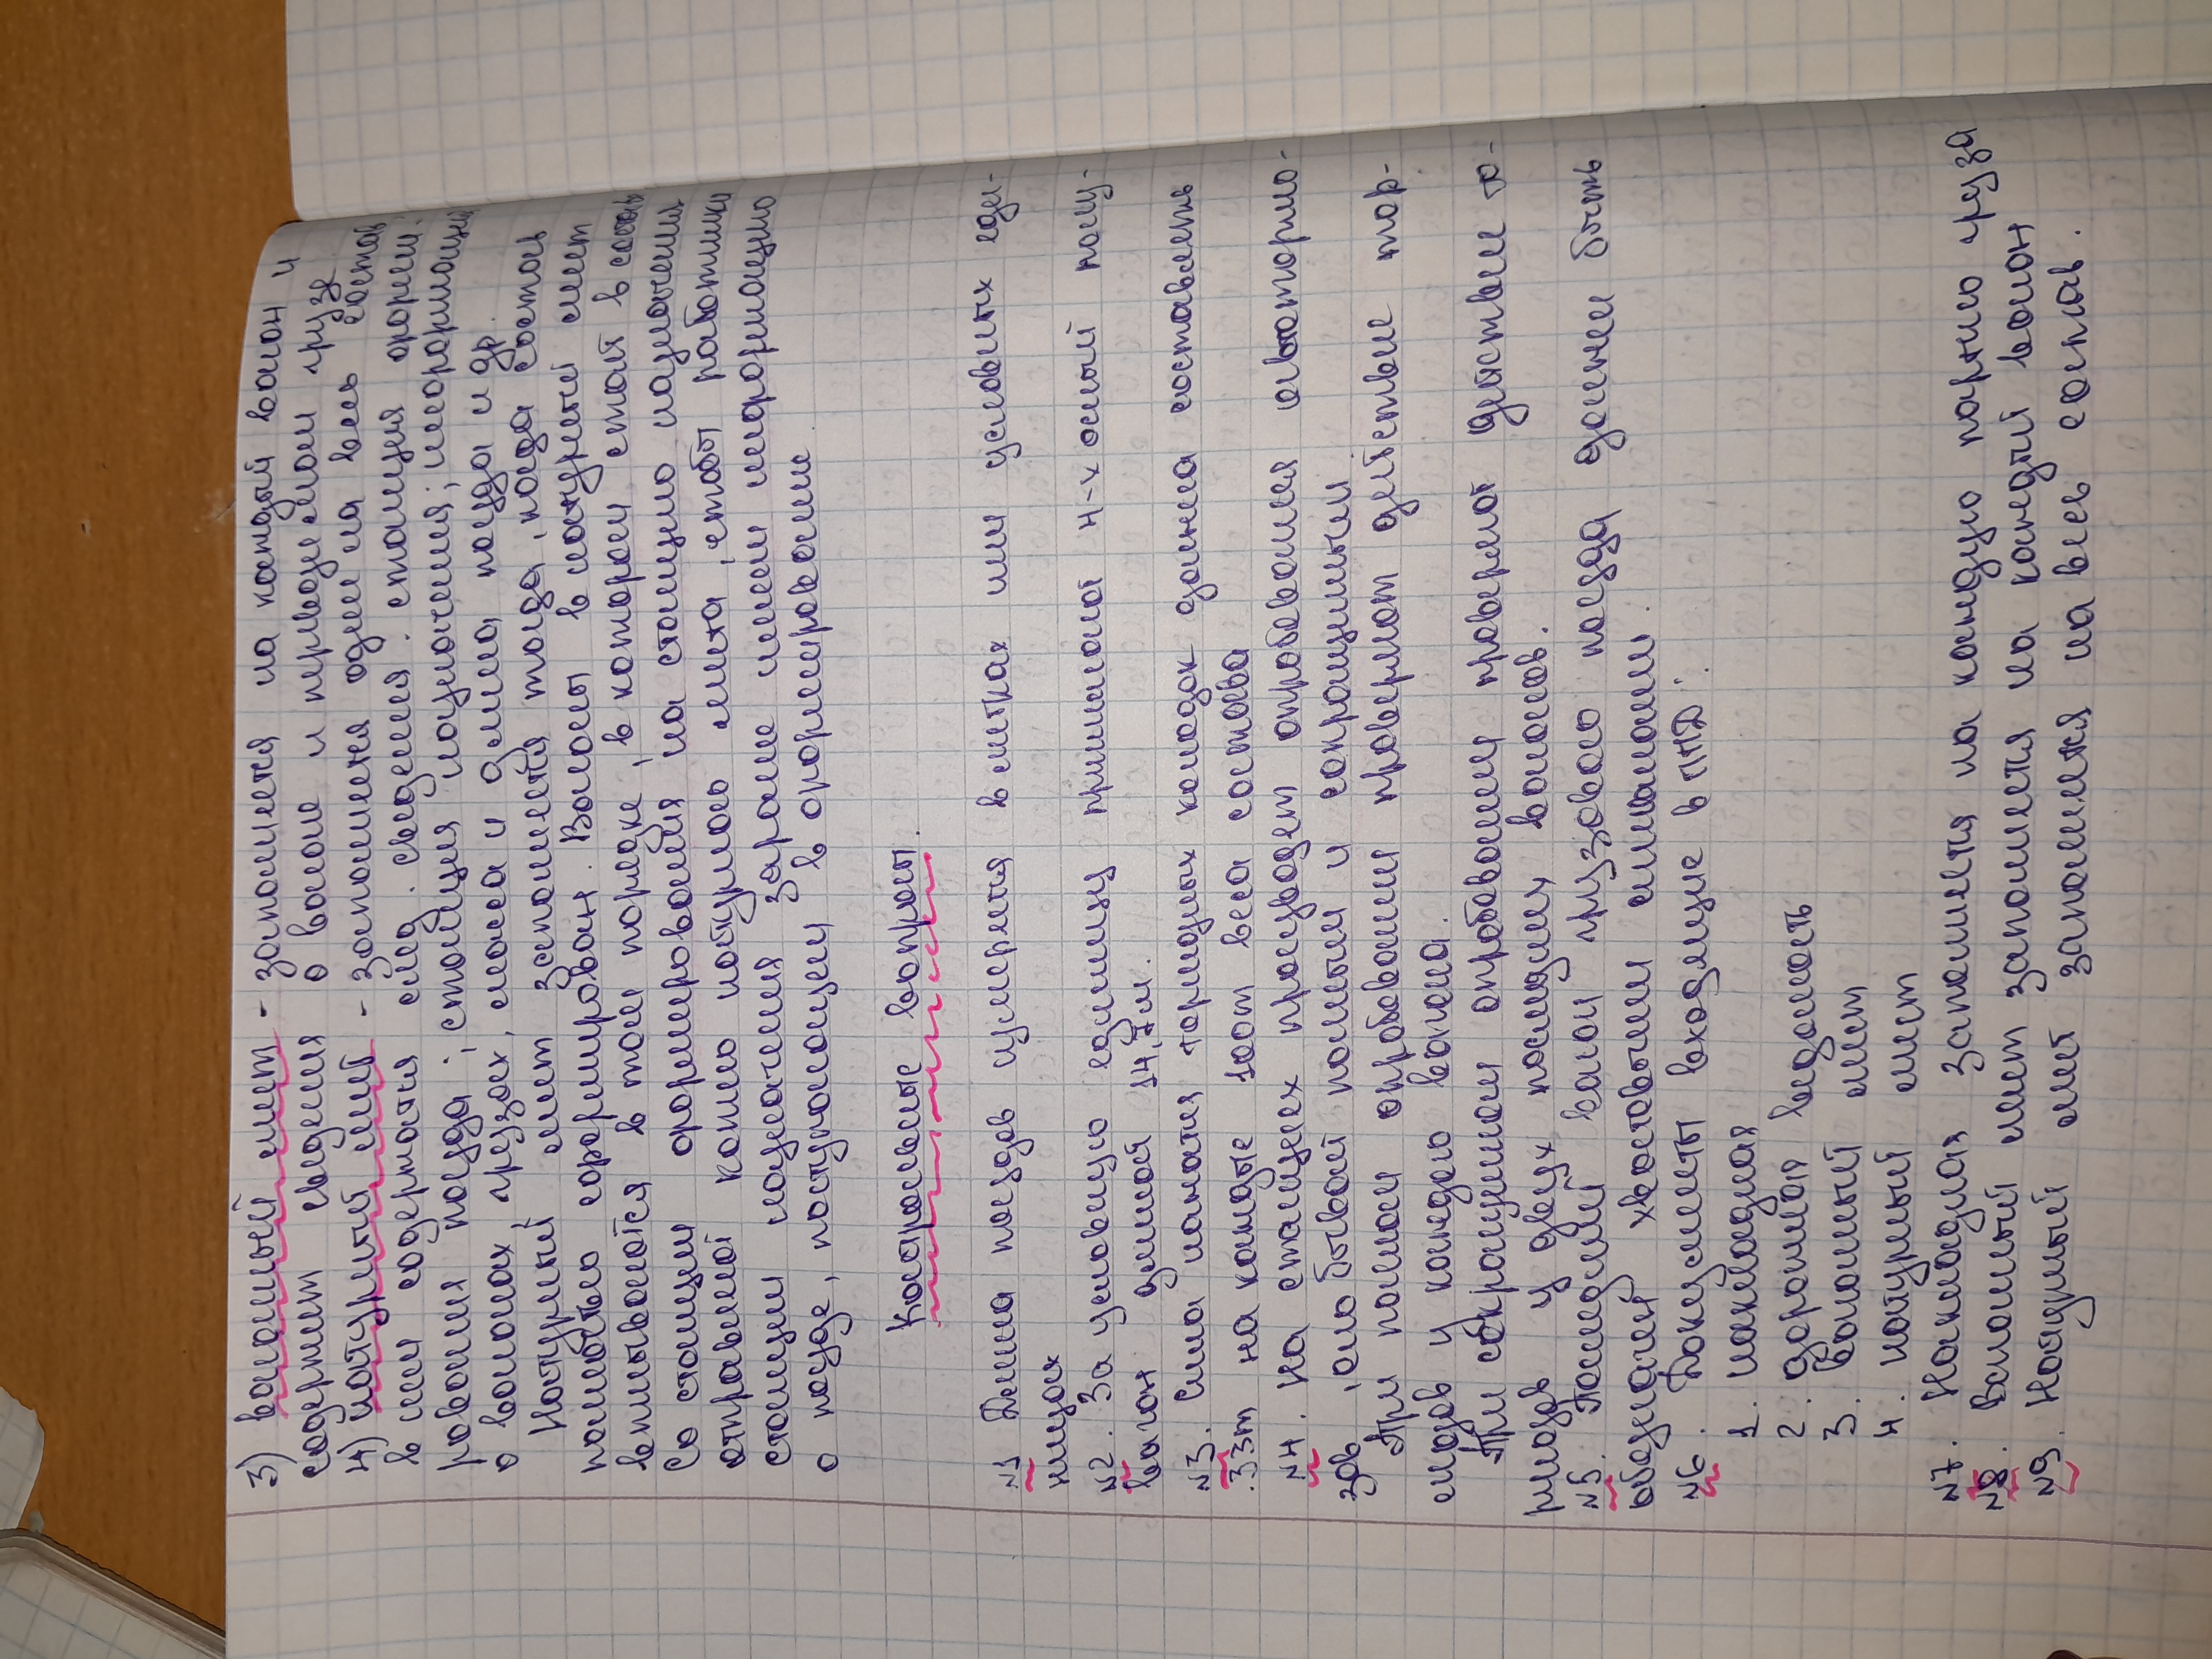 3) вагонный лист - заполняется на каждый вагон и
содержит сведения о вагоне и перевозимом грузе
4) натурный лист - заполняется один на весь состав
в нем содержатся след. сведения: станция форми-
рования поезда; станция назначения; информация
о вагонах, грузах, масса и длина поезда и др.
Натурный лист заполняется тогда, когда состав
полностью сформирован. Вагоны в натурный лист
вписываются в том порядке, в котором стоят в составе
Со станции формирования на станцию назначения
отправляют копию натурного листа, чтобы работники
станции назначения заранее имели информацию
о поезде, поступающем в расформирование
Контрольные вопросы.
№1 Длина поездов измеряется в метрах или условных еди-
ницах
№2. За условную единицу принимают 4-х осный полу-
вагон длиной 14,7м.
№3. Сила нажатия тормозных колодок должна составлять
33т на каждые 100т веса состава
№4. На станциях производят опробования автотормо-
зов, оно бывает полным и сокращенным
При полном опробовании проверяют действие тор-
мозов у каждого вагона.
При сокращённом опробовании проверяют действие то-
рмозов у двух последних вагонов.
№5. Последний вагон грузового поезда должен быть
обозначен хвостовыми сигналами.
№6. Документы входящие в ПД:
1. накладная
2. дорожная ведомость
3. Вагонный лист
4. натурный лист
№7. Накладная заполняется на каждую партию груза
№8. Вагонный лист заполняется на каждый вагон
№9. Натурный лист заполняется на весь состав.